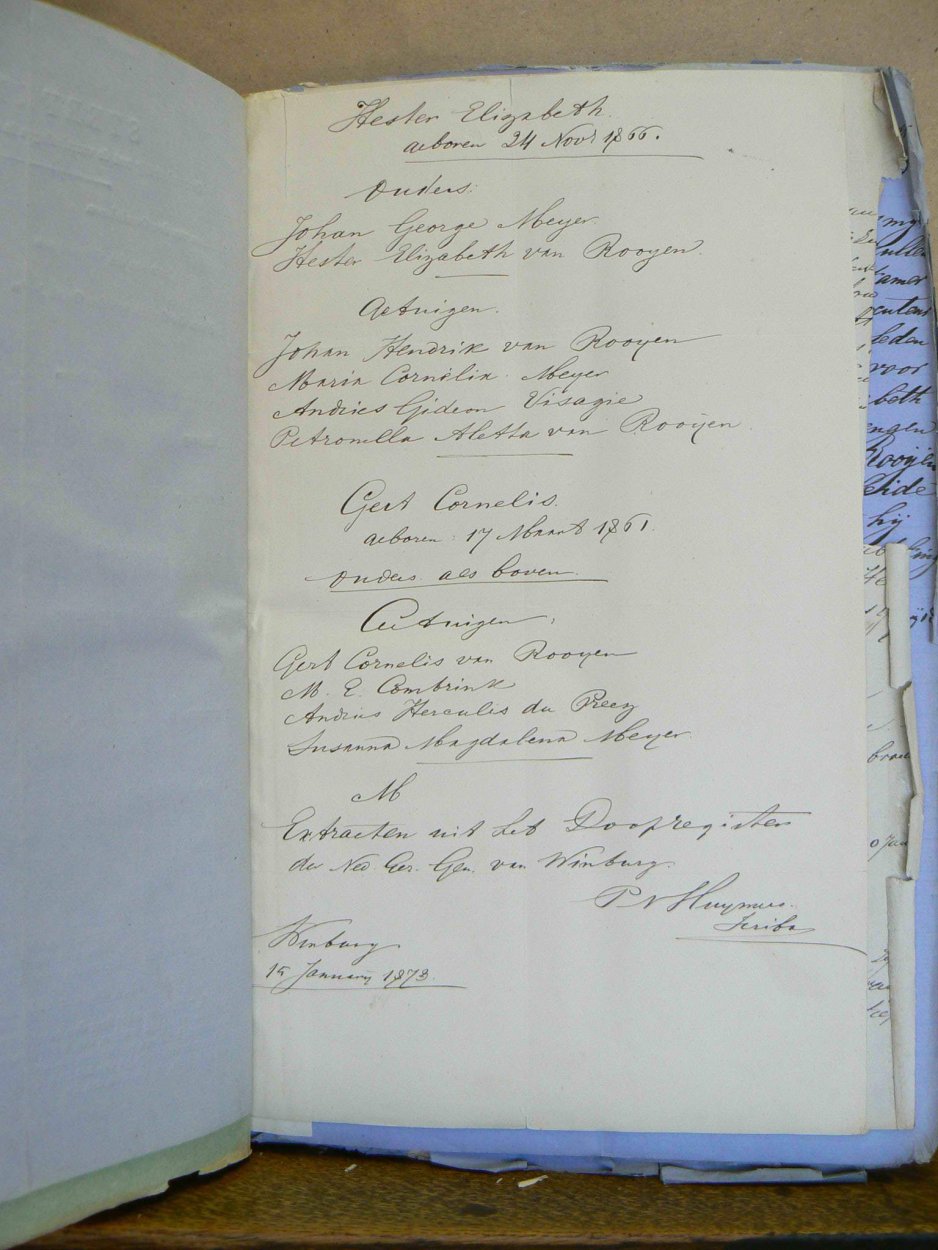 Hester Elizabeth.
geboren 24 Novr 1866.
Ouders:
Johan George Meyer
Hester Elizabeth van Rooyen.
Getuigen.
Johan Hendrik van Rooyen
Maria Cornelia Meyer
Andries Gideon Visagie
Petronella Aletta van Rooijen
Gert Cornelis.
geboren 17 Maart 1861.
Ouders als boven.
Getuigen,
Gert Cornelis van Rooyen
M. E. Combrink
Andries Hercules du Preez
Susanna Magdalena Meyer
M
Extracten uit het Doopregister
der Ned Ger. Gem. van Winburg.
P v
Scriba
Winburg
January 1873.
my
amer
leden
voor
beth
engen
Rooijen
hij